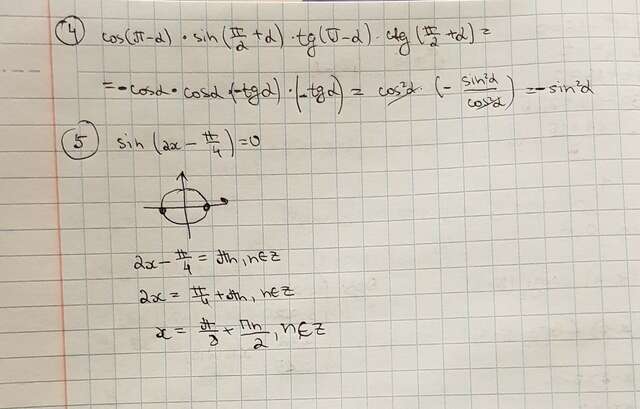 ④ cos(π-α) · sin(π/2+α) · tg(π-α) · ctg(π/2+α) =
= -cosα · cosα (-tgα) · (-tgα) = cos²α · (- sin²α/cos²α) = -sin²α
⑤ sin (2x - π/4) = 0
2x - π/4 = πn, n∈Z
2x = π/4 + πn, n∈Z
x = π/8 + πn/2, n∈Z